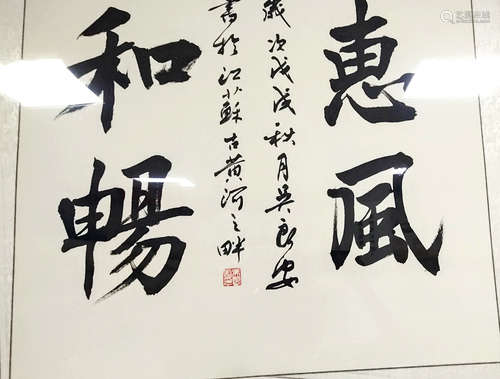 惠風
歲次戊戌秋月吳良安
書於江蘇古黃河之畔
和暢